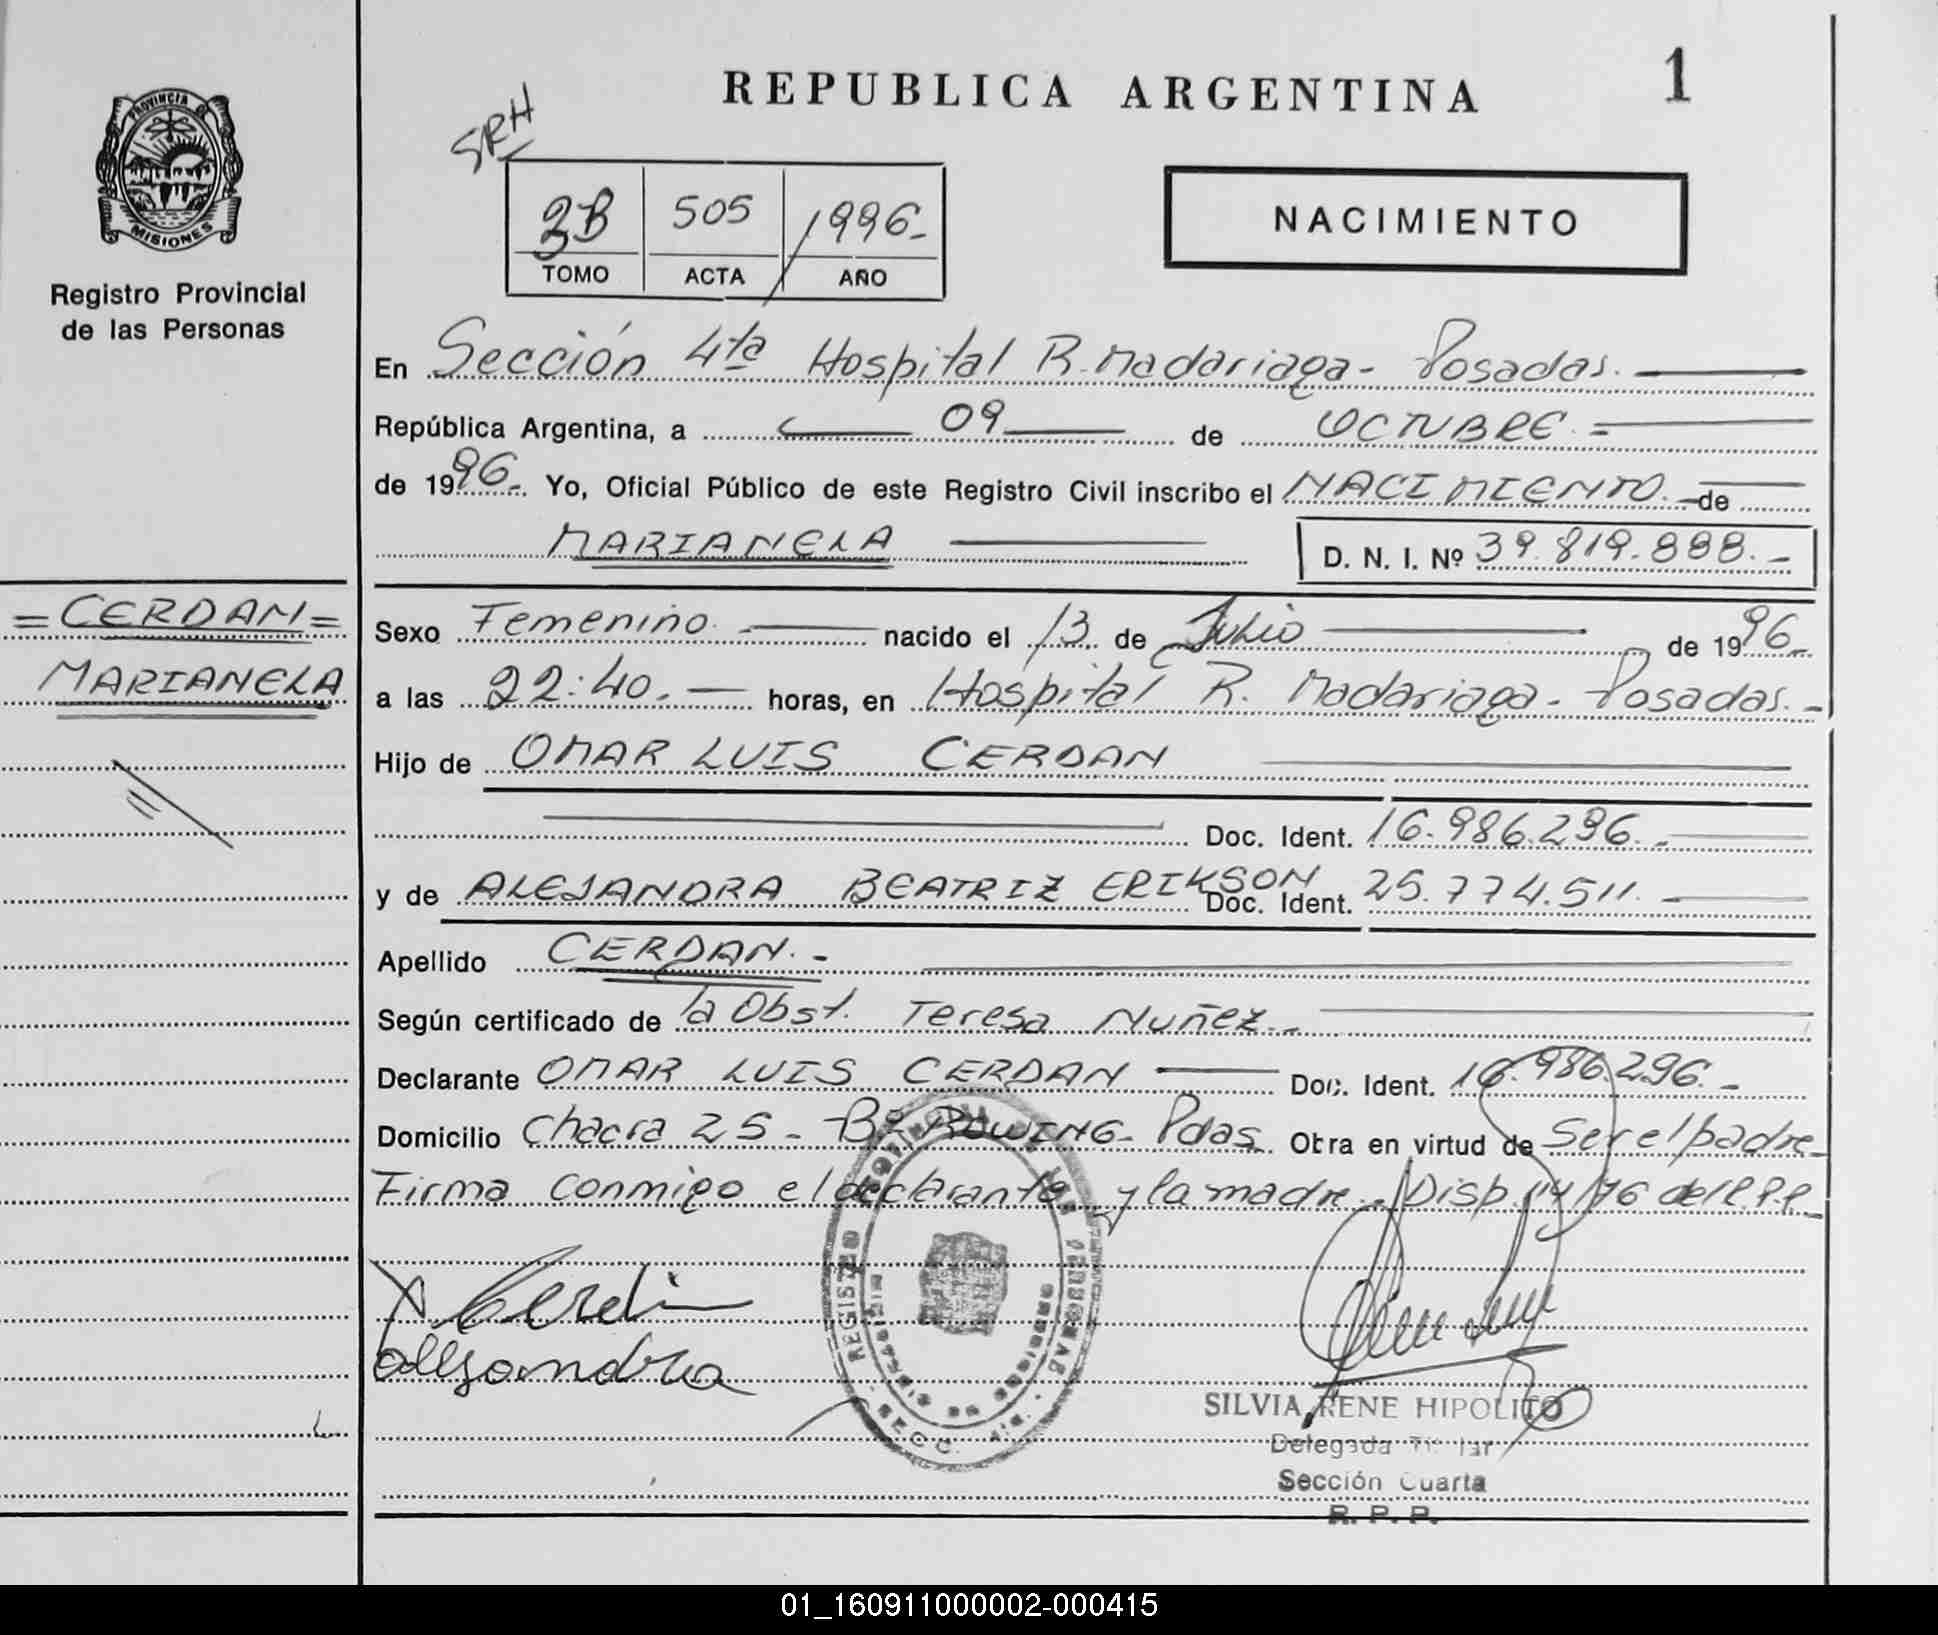 REPUBLICA ARGENTINA
1
SRH
PROVINCIA DE
MISIONES
Registro Provincial
de las Personas
505 1996-
TOMO ACTA AÑO
NACIMIENTO
En Sección 4ta Hospital R. Madariaga - Posadas.
República Argentina, a 09 de OCTUBRE. =
de 1996.- Yo, Oficial Público de este Registro Civil inscribo el NACIMIENTO. - de
MARIANELA D. N. I. Nº 39.819.888. -
= CERDAN =
MARIANELA
Sexo Femenino. nacido el 13 de Julio de 1996.-
a las 22:40. - horas, en Hospital R. Madariaga - Posadas. -
Hijo de OMAR LUIS CERDAN
Doc. Ident. 16.986.296. -
y de ALEJANDRA BEATRIZ ERIKSON Doc. Ident. 25.774.511. -
Apellido CERDAN. -
Según certificado de la Obst. Teresa Nuñez. -
Declarante OMAR LUIS CERDAN Doc. Ident. 16.986.296. -
Domicilio Chacra 25 - Bº ROWING - Pdas. Obra en virtud de Ser el padre -
Firma conmigo el declarante y la madre. Disp. 14/76 del R.P.P. -
Alejandra
REGISTRO PROVINCIAL DE LAS PERSONAS
SILVIA RENE HIPOLITO
Delegada Titular
Sección Cuarta
R. P. P.
01_160911000002-000415